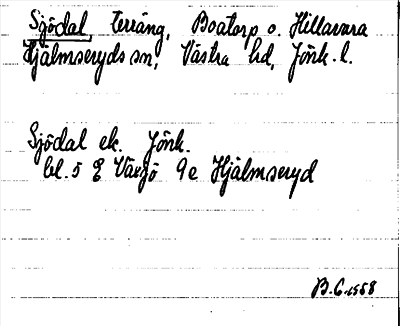 Sjödal, terräng, Boatorp o. Hillavara
Hjälmseryds sn, Västra hd, Jönk. l.
Sjödal ek. Jönk.
bl. 5 E Växjö 9e Hjälmseryd
B.C. 1958